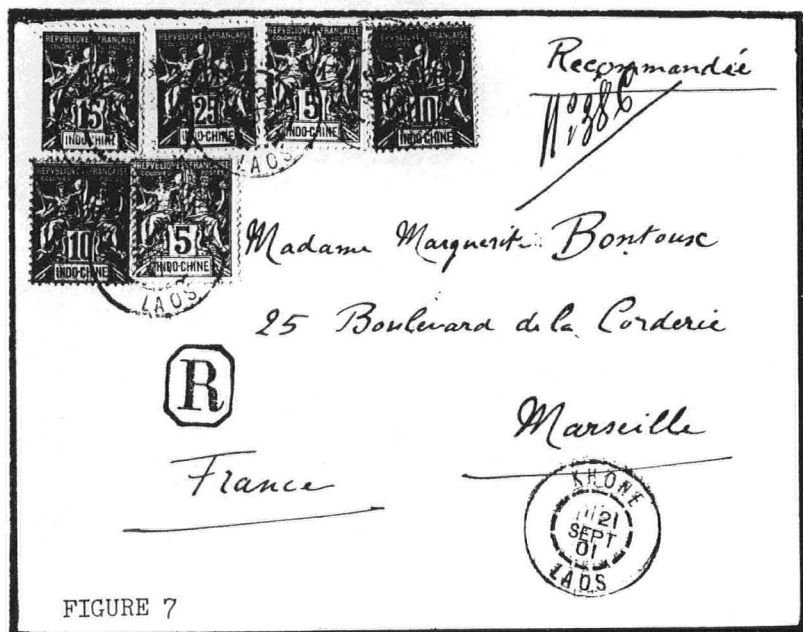 REPVBLIQVE FRANÇAISE
COLONIES POSTES
15
INDO-CHINE
REPVBLIQVE FRANÇAISE
COLONIES POSTES
25
INDO-CHINE
REPVBLIQVE FRANÇAISE
COLONIES POSTES
5
INDO-CHINE
REPVBLIQVE FRANÇAISE
COLONIES POSTES
10
INDO-CHINE
LAOS
Recommandée
N° 386
REPVBLIQVE FRANÇAISE
COLONIES POSTES
10
INDO-CHINE
REPVBLIQVE FRANÇAISE
COLONIES POSTES
5
INDO-CHINE
LAOS
Madame Marguerite Bontoux
25 Boulevard de la Corderie
R
Marseille
France
KHONE
21
SEPT
01
LAOS
FIGURE 7